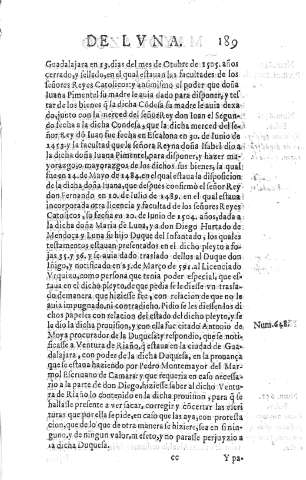 DE LVNA. 189
Guadalajara en 13. dias del mes de Otubre de 1505. años
cerrado, y sellado, en el qual estauan las facultades de los
señores Reyes Catolicos: y ansimismo el poder que doña
Iuana Pimentel su madre le auia dado para disponer, y tes
tar de los bienes q̃ la dicha Cõdesa su madre le auia dexa
do, junto con la merced del señor Rey don Iuan el Segun-
do fecha a la dicha Condesa, que la dicha merced del se-
ñor Rey dõ Iuan fue fecha en Escalona en 30. de Iunio de
1453. y la facultad que le señora Reyna doña Isabel dio a
la dicha doña Iuana Pimentel, para disponer, y hazer ma-
yorazgo, o mayorazgos de los dichos sus bienes, la qual
fue en 14. de Mayo de 1484. en el qual estaua la disposicion
de la dicha doña Iuana, que despues confirmó el señor Rey
don Fernando en 10. de Iulio de 1489. en el qual estaua
incorporada otra licencia y facultad de los señores Reyes
Catolicos, su fecha en 20. de Iunio de 1504. años, dada a
la dicha doña Maria de Luna, ya don Diego Hurtado de
Mendoça y Luna su hijo Duque del Infantado, los quales
testamentos estauan presentados en el dicho pleyto a fo-
jas 35. y 36. y se auia dado traslado dellos al Duque don
Iñigo, y notificado en 15. de Março de 591. al Licenciado
Vrquiza, como persona que tenia poder especial, que es-
taua en el dicho pleyto, de que pedia se le diesse vn trasla-
do de manera que hiziesse fee, con relacion de que no le
auia impugnado, ni contradicho. Pidio se les diessen di-
chos papeles con relacion del estado del dicho pleyto, y se
le dio la dicha prouision, y con ella fue citado Antonio de
Moya procurador de la Duquesa, y respondio, que se noti-
ficasse a Ventura de Riaño, q̃ estaua en la ciudad de Gua-
dalajara, con poder de la dicha Duquesa, en la prouança
que se estaua haziendo por Pedro Montemayor del Mar-
mol Escriuano de Camara: y que requeria en caso necessa-
rio a la parte de don Diego, hiziesse saber al dicho Ventu-
ra de Riaño lo contenido en la dicha prouision, para q̃ se
hallasse presente a ver sacar, corregir y cõcertar las escri
turas que por ella se pide, en caso que las aya, con protesta
cion, que de lo que de otra manera se hiziere, sea en si nin-
guno, y de ningun valor, ni efeto, y no parasse perjuyzio a
la dicha Duquesa.
Num. 648.
cc Y pa-